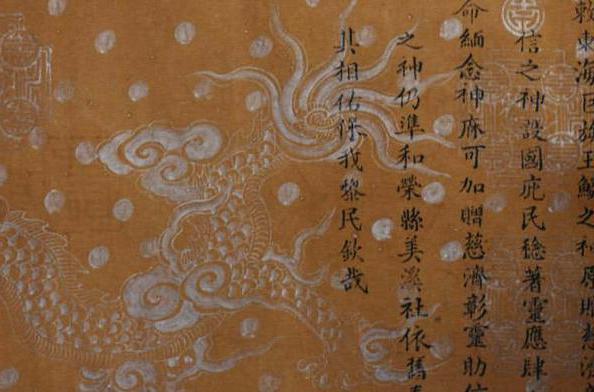 敕東海巨族王鱗之神原贈慈濟
信之神護國庇民稔著靈應肆
命緬念神庥可加贈慈濟彰靈助
之神仍準和榮縣美溪社依舊
其相佑保我黎民欽哉